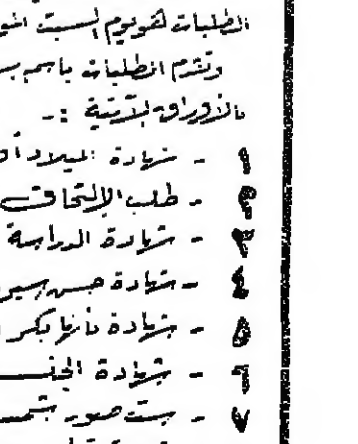 الطلبات هو يوم السبت
وتقدم الطلبات باسم
بالأوراق الآتية :-
١ - شهادة الميلاد أو
٢ - طلب الإلتحاق
٣ - شهادة الدراسة
٤ - شهادة حسن سير
٥ - شهادة بأنها بكر
٦ - شهادة الجنـ
٧ - ست صور شمسـ